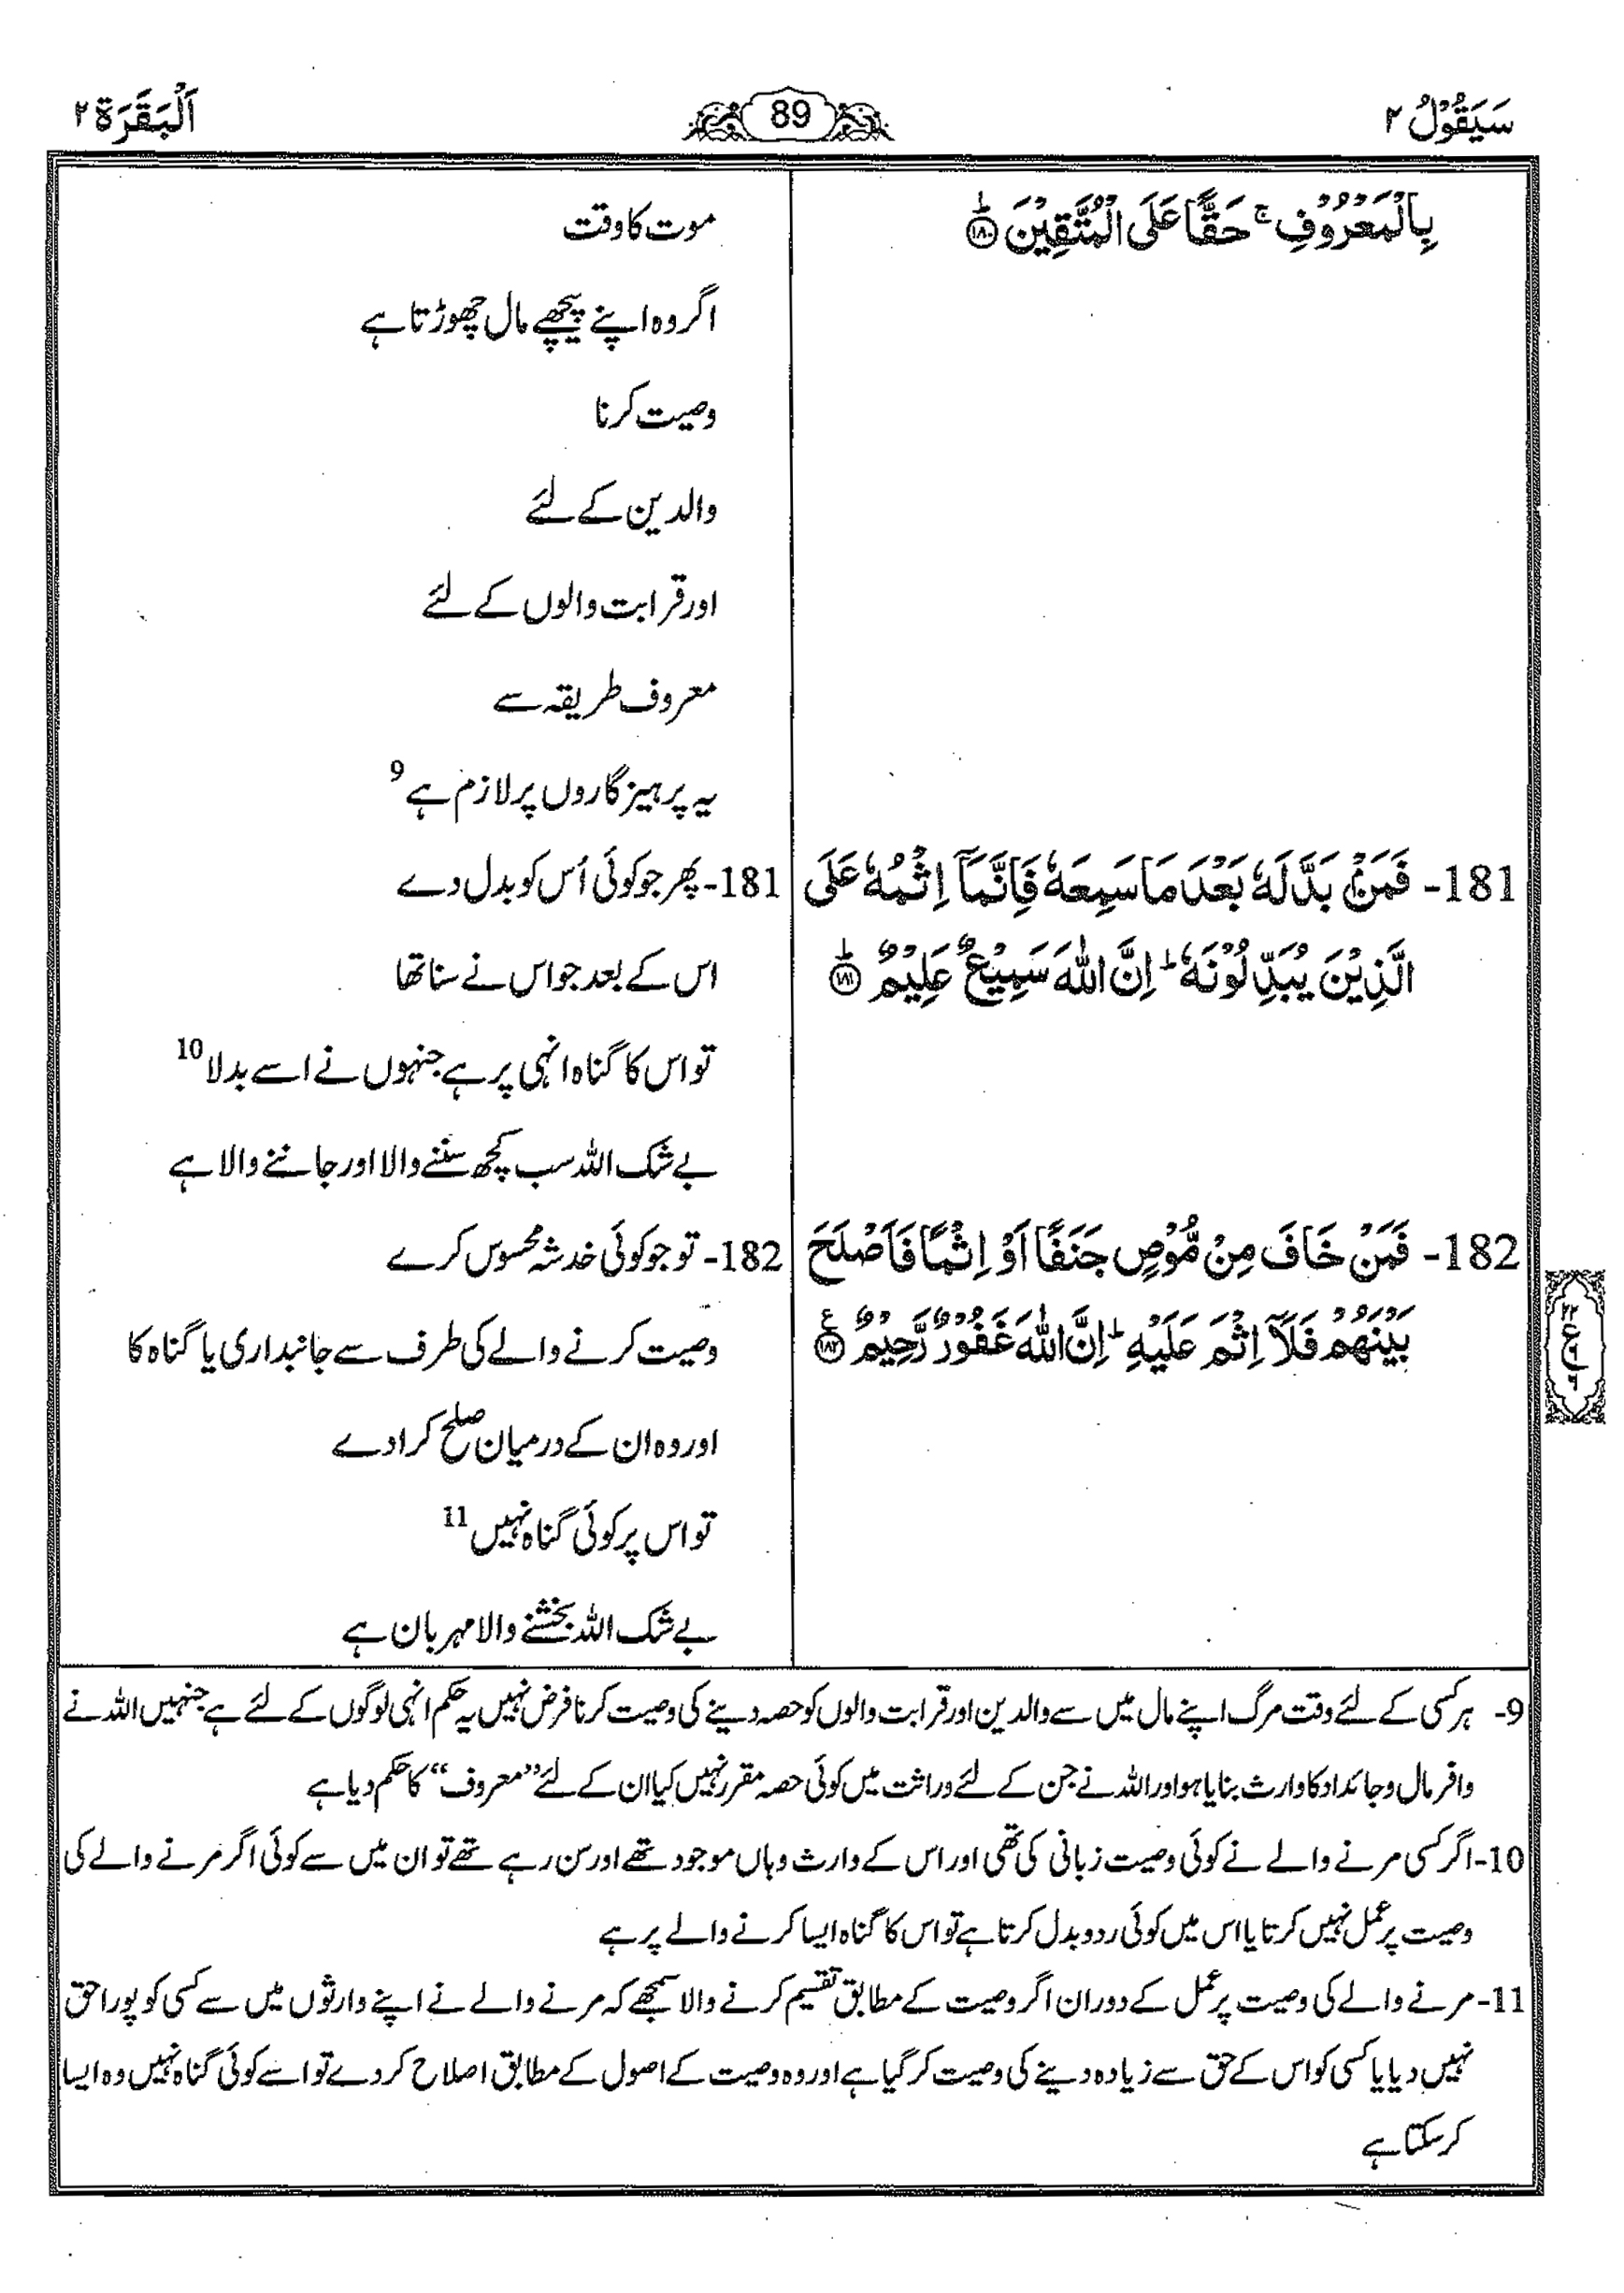 سَيَقُوْلُ ٢
89
اَلْبَقَرَة ٢
بِالْمَعْرُوْفِ ۚ حَقًّا عَلَى الْمُتَّقِيْنَ ؕ﴿۱۸۰﴾
موت کا وقت
اگر وہ اپنے پیچھے مال چھوڑتا ہے
وصیت کرنا
والدین کے لئے
اور قرابت والوں کے لئے
معروف طریقہ سے
یہ پرہیزگاروں پر لازم ہے 9
181- فَمَنْۢ بَدَّلَهٗ بَعْدَ مَا سَمِعَهٗ فَاِنَّمَاۤ اِثْمُهٗ عَلَى
الَّذِيْنَ يُبَدِّلُوْنَهٗ ؕ اِنَّ اللّٰهَ سَمِيْعٌ عَلِيْمٌ ؕ﴿۱۸۱﴾
181- پھر جو کوئی اُس کو بدل دے
اس کے بعد جو اس نے سنا تھا
تو اس کا گناہ انہی پر ہے جنہوں نے اسے بدلا 10
بے شک اللہ سب کچھ سننے والا اور جاننے والا ہے
182- فَمَنْ خَافَ مِنْ مُّوْصٍ جَنَفًا اَوْ اِثْمًا فَاَصْلَحَ
بَيْنَهُمْ فَلَاۤ اِثْمَ عَلَيْهِ ؕ اِنَّ اللّٰهَ غَفُوْرٌ رَّحِيْمٌ ﴿۱۸۲﴾ ع
182- تو جو کوئی خدشہ محسوس کرے
وصیت کرنے والے کی طرف سے جانبداری یا گناہ کا
اور وہ ان کے درمیان صلح کرا دے
تو اس پر کوئی گناہ نہیں 11
بے شک اللہ بخشنے والا مہربان ہے
9- ہر کسی کے لئے وقت مرگ اپنے مال میں سے والدین اور قرابت والوں کو حصہ دینے کی وصیت کرنا فرض نہیں یہ حکم انہی لوگوں کے لئے ہے جنہیں اللہ نے
وافر مال و جائداد کا وارث بنایا ہو اور اللہ نے جن کے لئے وراثت میں کوئی حصہ مقرر نہیں کیا ان کے لئے ”معروف“ کا حکم دیا ہے
10- اگر کسی مرنے والے نے کوئی وصیت زبانی کی تھی اور اس کے وارث وہاں موجود تھے اور سن رہے تھے تو ان میں سے کوئی اگر مرنے والے کی
وصیت پر عمل نہیں کرتا یا اس میں کوئی ردوبدل کرتا ہے تو اس کا گناہ ایسا کرنے والے پر ہے
11- مرنے والے کی وصیت پر عمل کے دوران اگر وصیت کے مطابق تقسیم کرنے والا سمجھے کہ مرنے والے نے اپنے وارثوں میں سے کسی کو پورا حق
نہیں دیا یا کسی کو اس کے حق سے زیادہ دینے کی وصیت کر گیا ہے اور وہ وصیت کے اصول کے مطابق اصلاح کر دے تو اسے کوئی گناہ نہیں وہ ایسا
کر سکتا ہے